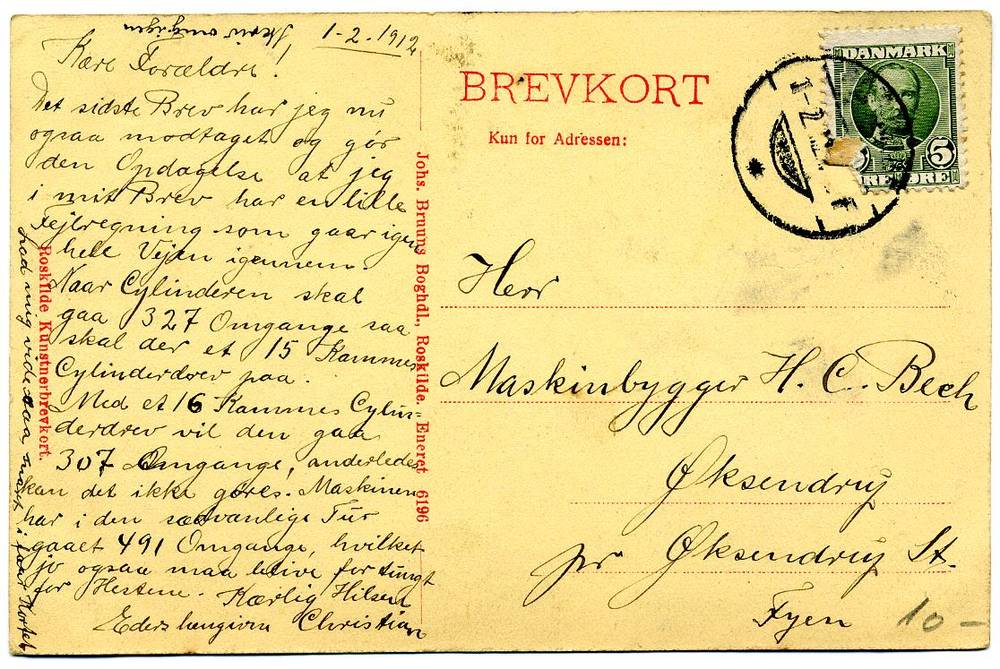 Skriv omgaaende
1-2.1912
Kære Forældre!
Det sidste Brev har jeg nu
ogsaa modtaget og gör
den Opdagelse at jeg
i mit Brev har en lille
Fejlregning som gaar igen
hele Vejen igennem.
Naar Cylinderen skal
gaa 327 Omgange saa
skal der et 15 Kammes
Cylinderdrev paa.
Med et 16 Kammes Cylin-
derdrev vil den gaa
307 Omgange, anderledes
kan det ikke göres. Maskinen
har i den sædvanlige Tur
gaaet 491 Omgange, hvilket
jo ogsaa maa blive for tungt
for Hestene. Kærlig Hilsen
Eders hengivne Christian
Lad mig vide saa snart i faar Kortet
Johs. Bruuns Boghdl., Roskilde. Eneret 6196
Roskilde Kunstnerbrevkort.
BREVKORT
Kun for Adressen:
DANMARK
5
ØRE
1-2
Herr
Maskinbygger H. C. Bech
Øksendrup
pr Øksendrup St.
Fyen
10-